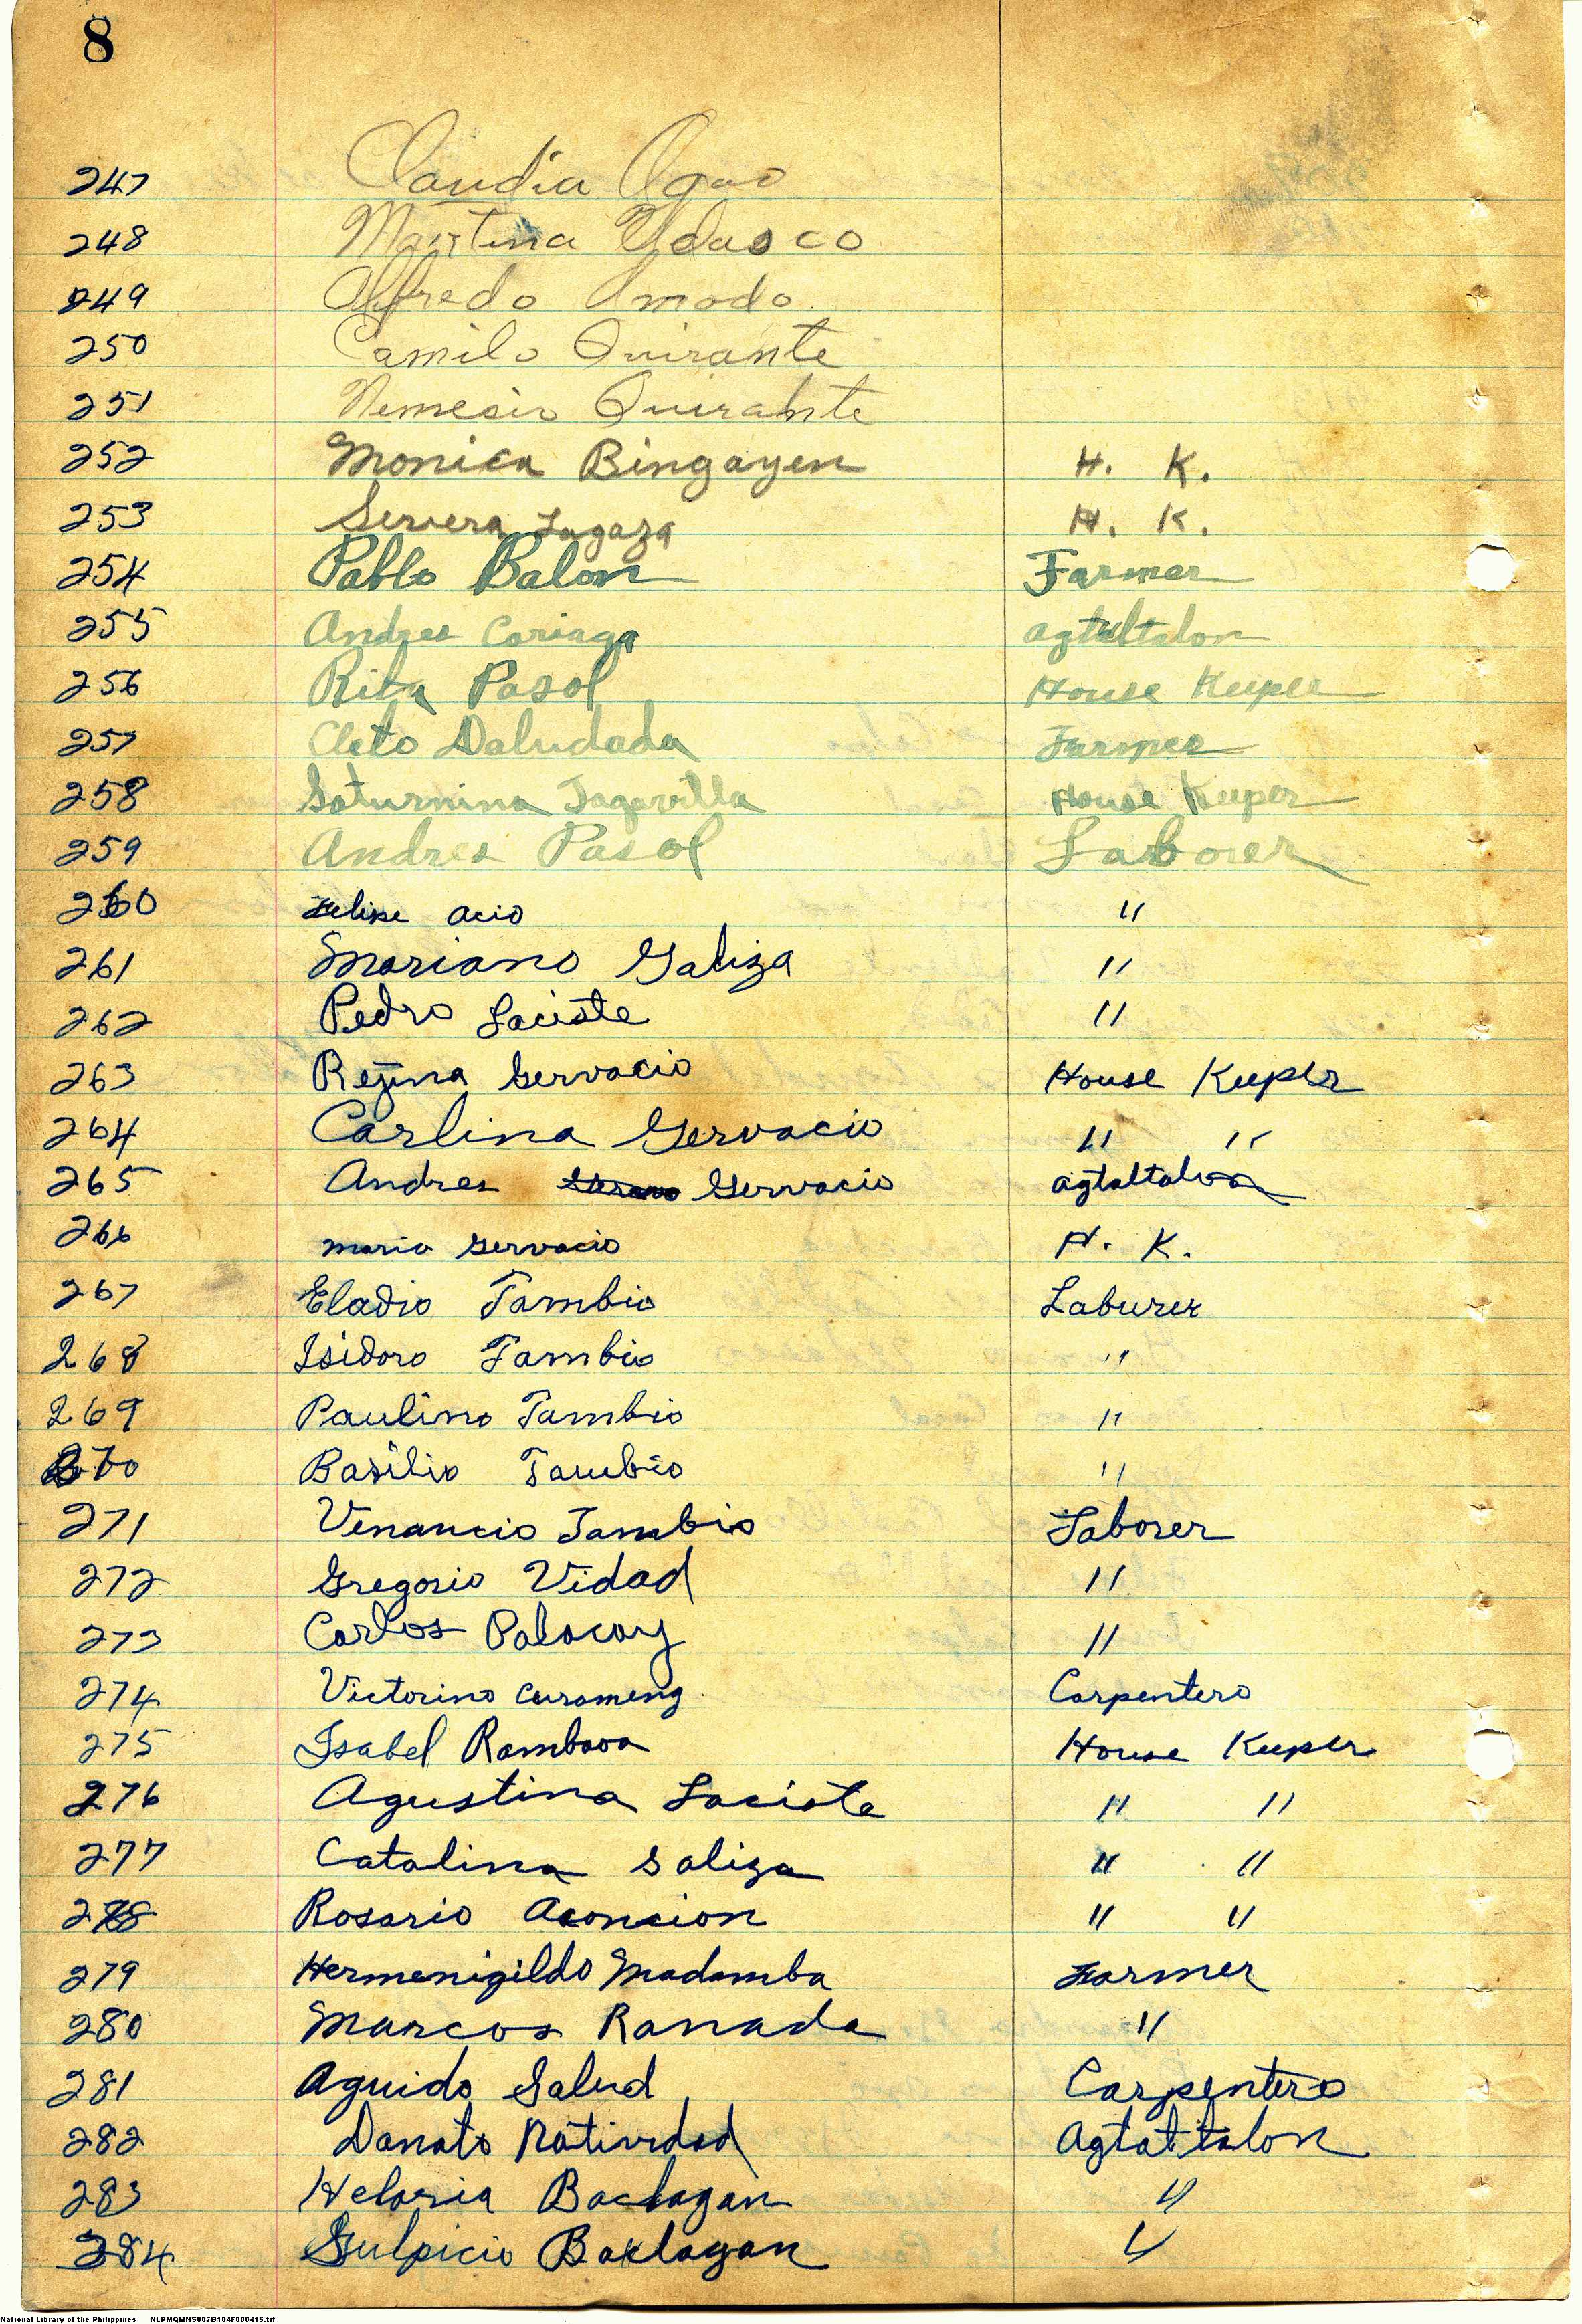 8
247 Claudia Agao
248 Martina Udasco
249 Alfredo Amodo
250 Camilo Quirante
251 Nemesio Quirante
252 Monica Bingayen H. K.
253 Servera Lagaza H. K.
254 Pablo Balon Farmer
255 Andres Cariaga agtaltalon
256 Rita Pasol House Keeper
257 Cleto Daludada Farmer
258 Saturnina Tagavilla House Keeper
259 Andres Pasol Laborer
260 Felipe Acio "
261 Mariano Galiza "
262 Pedro Laciste "
263 Regina Gervacio House Keeper
264 Carlina Gervacio " "
265 Andres Gervacio agtaltalon
266 maria Gervacio H. K.
267 Eladio Tambio Laburer
268 Isidoro Tambio "
269 Paulino Tambio "
270 Basilio Tambio "
271 Venancio Tambio Laborer
272 Gregorio Vidad "
273 Carlos Palacay "
274 Victorino Curameng Carpentero
275 Isabel Rambaoa House Keeper
276 Agustina Laciste " "
277 Catalina Saliza " "
278 Rosario Asoncion " "
279 Hermenigildo Madamba Farmer
280 Marcos Ranada "
281 Aguido Salud Carpentero
282 Donato Natividad Agtaltalon
283 Heloria Baclagan "
284 Sulpicio Baclagan "
National Library of the Philippines NLPMQMNS007B104F000415.tif